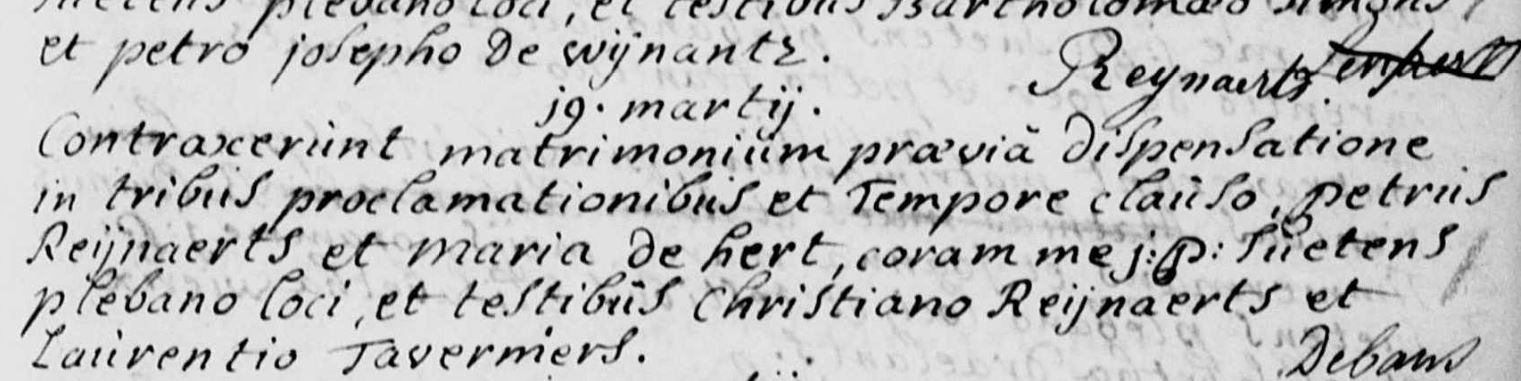 Suetens plebano loci, et testibus Bartholomæo Simons
et petro josepho De wijnantz.
Reynaerts
19. martij.
Contraxerunt matrimonium præviâ Dispensatione
in tribus proclamationibus et Tempore clauso, petrus
Reijnaerts et Maria De hert, coram me j: p: Suetens
plebano loci, et testibus Christiano Reijnaerts et
Laurentio Taverniers.